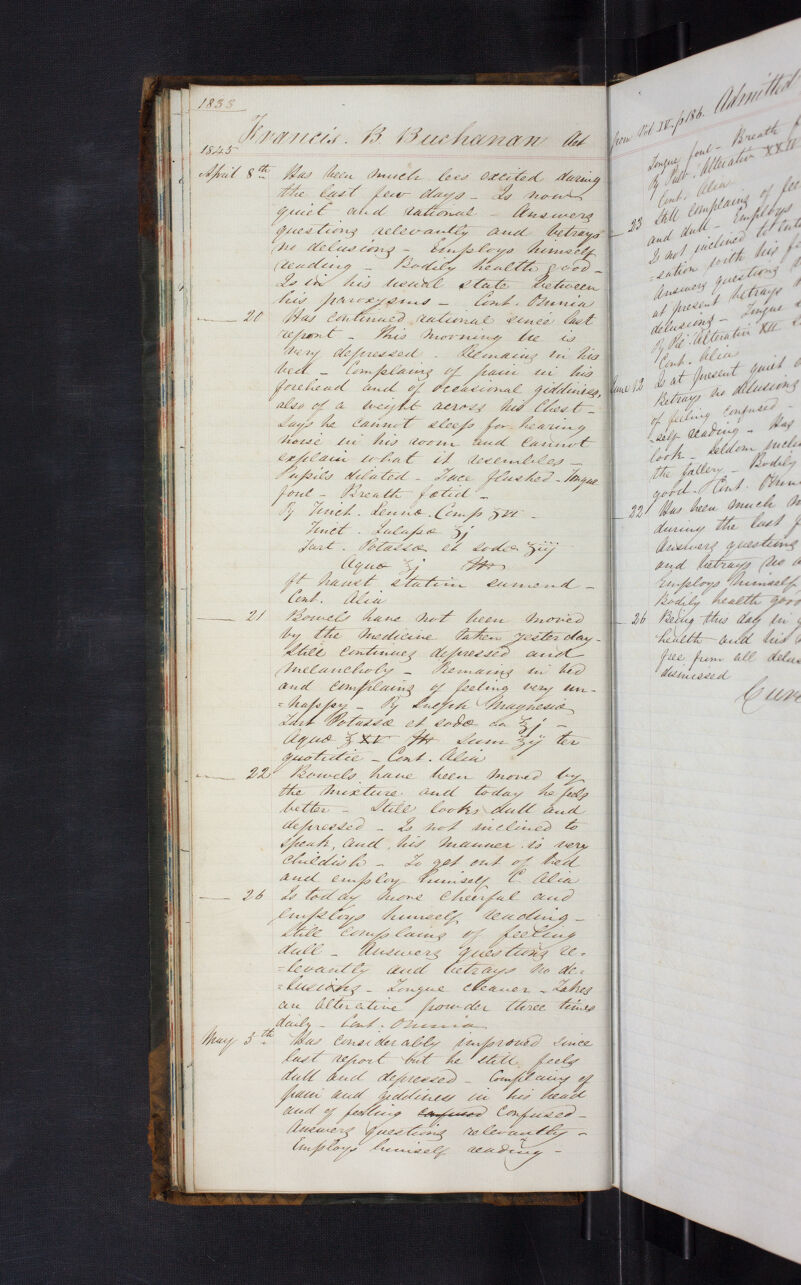 1833
Francis. B. Buchanan Aet
1845
April 8th Has been much less excited during
the last few days - Is now
quiet and rational - Answers
questions relevantly and betrays
no delusions - Employs himself
reading - Bodily health good -
Is in his usual state between
his paroxysms - Cont. Omnia
20 Has continued rational since last
report - This morning he is
very depressed. Remains in his
bed - Complains of pain in his
forehead and of occasional giddiness,
also of a weight across his Chest -
Says he cannot sleep for hearing
noise in his room and cannot
explain what it resembles -
Pupils dilated - Face flushed - Tongue
foul - Breath foetid -
℞ Tinct. Sennae Comp ʒvi -
Tinct. Jalapae ʒj
Tart. Potassae et sodae ʒiij
Aquae ℥j
ft haust statim sumend -
Cont. Alia
21 Bowels have not been moved
by the medicine taken yesterday -
Still continues depressed and
melancholy - Remains in bed
and complains of feeling very un-
=happy - ℞ Sulph Magnesiae
Tart Potassae et sodae aa ℥j -
Aquae ℥XV Sum ℥ij ter
quotidie - Cont. Alia
22 Bowels have been moved by
the mixture and today he feels
better - Still looks dull and
depressed - Is not inclined to
speak, and his manner is very
childish - To get out of bed
and employ himself C. Alia
26 Is today more cheerful and
employs himself reading -
Still complains of feeling
dull - Answers questions re-
=levantly and betrays no de-
=lusions - Tongue cleaner - Takes
an alterative powder three times
daily - Cont. Omnia
May 5th Has considerably improved since
last report but he still feels
dull and depressed - Complains of
pain and giddiness in his head
and of feeling confused confused -
Answers questions relevantly -
Employs himself reading -
from Vol IV p 186. Admitted
Tongue foul - Breath
℞ Pulv. Alterativ XXIV
Cont. Alia
23 Still complains of
and dull - Employs
Is not inclined to
=sation with his
Answers questions
at present betrays
delusions - Tongue
Alterativ XII
Cont. Alia
June 12 Is at present quiet
Betrays no delusions
of feeling confused -
=self reading - Has
look - Seldom
the gallery - Bodily
good - Cont.
22 Has been much
during the last
Answers questions
and betrays no
Employs himself
Bodily health
26 Being this day in
health and
free from all
dismissed